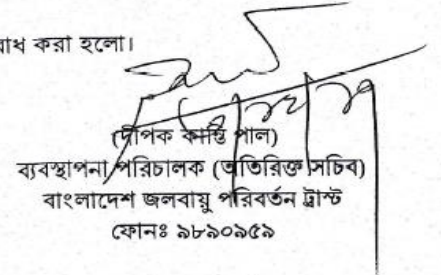 রোধ করা হলো।
(দীপক কান্তি পাল)
ব্যবস্থাপনা পরিচালক (অতিরিক্ত সচিব)
বাংলাদেশ জলবায়ু পরিবর্তন ট্রাস্ট
ফোনঃ ৯৮৯০৯৫৯